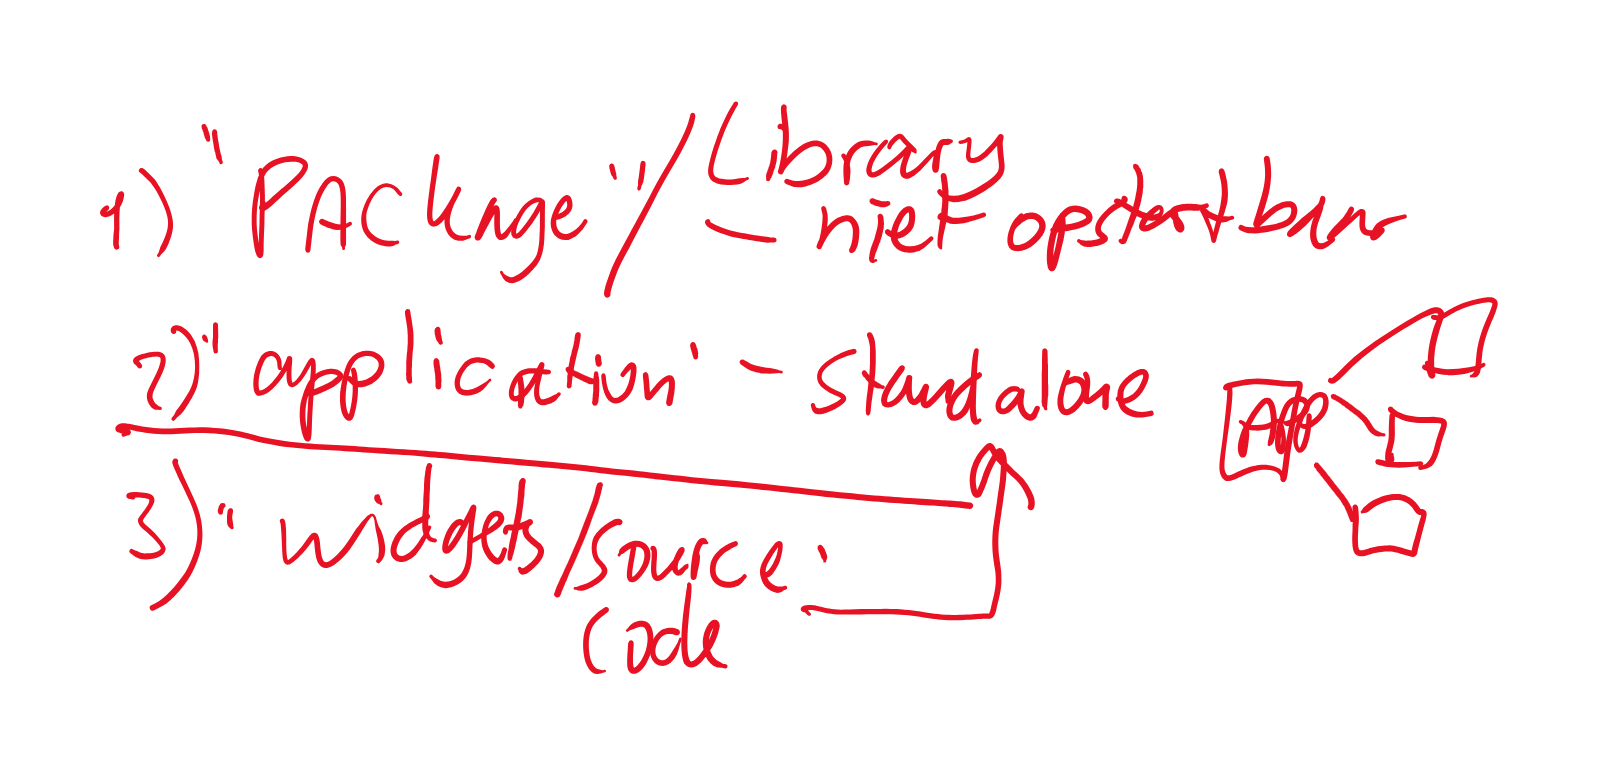 1) "PACkage"/Library
- niet opstartbaar
2) "application" - standalone
APP
3) "widgets/source"
code